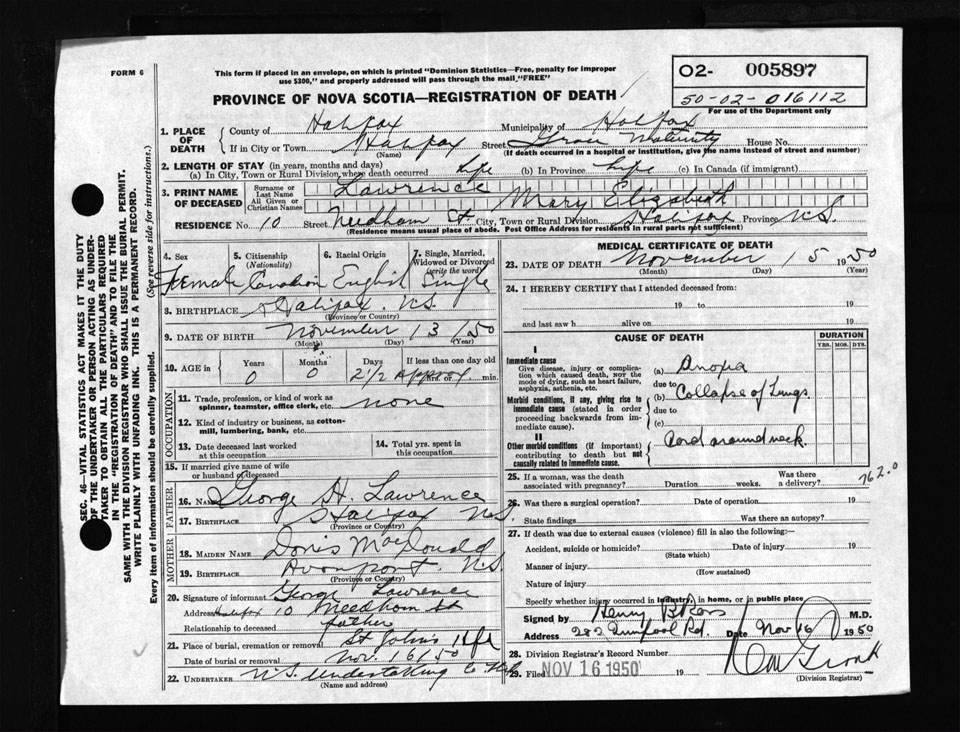 FORM 6
This form if placed in an envelope, on which is printed "Dominion Statistics—Free, penalty for improper
use $300," and properly addressed will pass through the mail "FREE"
PROVINCE OF NOVA SCOTIA—REGISTRATION OF DEATH
02- 005897
50-02-016112
For use of the Department only
1. PLACE OF DEATH
County of Halifax Municipality of Halifax
If in City or Town Halifax Street Maternity House No.
(Name) (If death occurred in a hospital or institution, give the name instead of street and number)
2. LENGTH OF STAY (in years, months and days)
(a) In City, Town or Rural Division where death occurred Life (b) In Province Life (c) In Canada (if immigrant)
3. PRINT NAME OF DECEASED
Surname or Last Name Lawrence
All Given or Christian Names Mary Elizabeth
RESIDENCE No. 10 Street Needham St City, Town or Rural Division Halifax Province N.S.
(Residence means usual place of abode. Post Office Address for residents in rural parts not sufficient)
4. Sex 5. Citizenship (Nationality) 6. Racial Origin 7. Single, Married, Widowed or Divorced (write the word)
Female Canadian English Single
8. BIRTHPLACE Halifax N.S.
(Province or Country)
9. DATE OF BIRTH November 13 1950
(Month) (Day) (Year)
10. AGE in Years Months Days If less than one day old
0 0 2 1/2 Approx. hrs. or min.
OCCUPATION
11. Trade, profession or kind of work as
spinner, teamster, office clerk, etc. none
12. Kind of industry or business, as cotton-
mill, lumbering, bank, etc.
13. Date deceased last worked
at this occupation
14. Total yrs. spent in
this occupation
15. If married give name of wife
or husband of deceased
FATHER
16. NAME George H. Lawrence
17. BIRTHPLACE Halifax N.S.
(Province or Country)
MOTHER
18. MAIDEN NAME Doris MacDonald
19. BIRTHPLACE Avonport N.S
(Province or Country)
20. Signature of informant George Lawrence
Address Halifax 10 Needham St
Relationship to deceased father
21. Place of burial, cremation or removal St John's Hfx
Date of burial or removal Nov. 16/50
22. UNDERTAKER N.S. Undertaking Co Hfx
(Name and address)
MEDICAL CERTIFICATE OF DEATH
23. DATE OF DEATH November 15 1950
(Month) (Day) (Year)
24. I HEREBY CERTIFY that I attended deceased from:
19 to 19
and last saw h alive on 19
CAUSE OF DEATH
DURATION
YRS. MOS. DYS.
I
Immediate cause
Give disease, injury or complica-
tion which caused death, NOT the
mode of dying, such as heart failure,
asphyxia, asthenia, etc.
(a) Anoxia
due to
Morbid conditions, if any, giving rise to
immediate cause (stated in order
proceeding backwards from im-
mediate cause).
(b) Collapse of Lungs
due to
(c)
II
Other morbid conditions (if important)
contributing to death but not
causally related to immediate cause.
Cord around neck.
762.0
25. If a woman, was the death
associated with pregnancy? Duration weeks. Was there
a delivery?
26. Was there a surgical operation? Date of operation 19
State findings Was there an autopsy?
27. If death was due to external causes (violence) fill in also the following:
Accident, suicide or homicide? Date of injury 19
(State which)
Manner of injury
(How sustained)
Nature of injury
Specify whether injury occurred in industry, in home, or in public place
Signed by Henry B Ross M.D.
Address 282 Quinpool Rd. Date Nov 16 1950
28. Division Registrar's Record Number
29. Filed NOV 16 1950 19
(Division Registrar)
SEC. 46—VITAL STATISTICS ACT MAKES IT THE DUTY
OF THE UNDERTAKER OR PERSON ACTING AS UNDER-
TAKER TO OBTAIN ALL THE PARTICULARS REQUIRED
IN THE "REGISTRATION OF DEATH" AND TO FILE THE
SAME WITH THE DIVISION REGISTRAR WHO SHALL ISSUE THE BURIAL PERMIT.
WRITE PLAINLY WITH UNFADING INK. THIS IS A PERMANENT RECORD.
Every item of information should be carefully supplied. (See reverse side for instructions.)